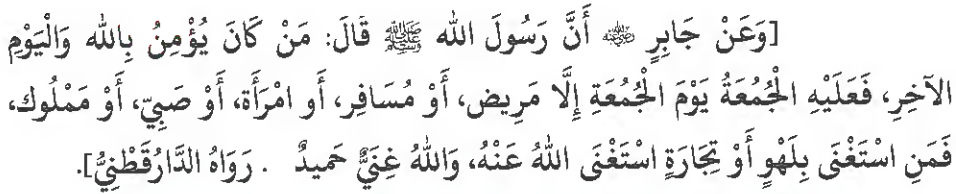 [وَعَنْ جَابِرٍ ﵁ أَنَّ رَسُولَ الله ﷺ قَالَ: مَنْ كَانَ يُؤْمِنُ بِالله وَالْيَوْمِ
الآخِرِ، فَعَلَيْهِ الْجُمعَةُ يَوْمَ الْجُمعَةِ إِلَّا مَرِيض، أَوْ مُسَافِر، أَو امْرَأَة، أَوْ صَبِيّ، أَوْ مَمْلُوك،
فَمَنِ اسْتَغْنَى بِلَهْوٍ أَوْ تِجَارَةٍ اسْتَغْنَى اللهُ عَنْهُ، وَاللهُ غَنِيٌّ حَمِيدٌ . رَوَاهُ الدَّارُقَطْنِيُّ].